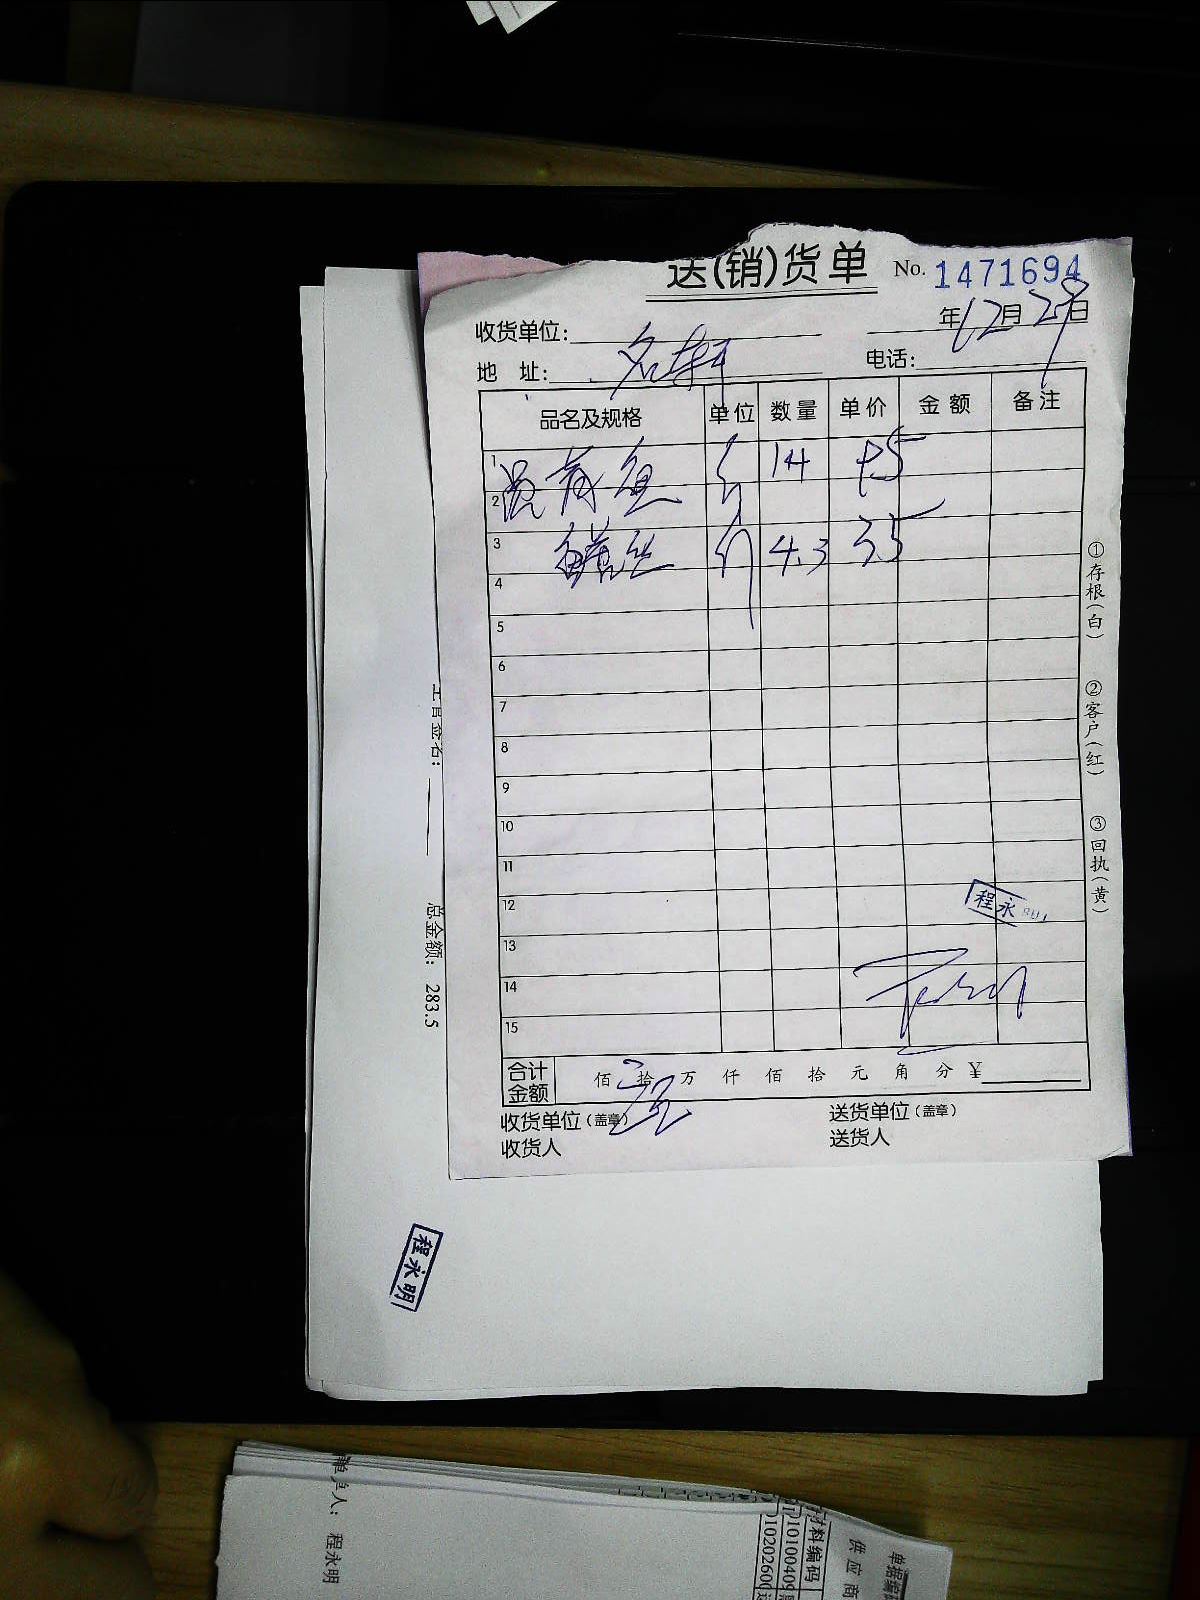 送(销)货单 No. 1471694
收货单位: 年12月29日
地 址: 名轩 电话:
品名及规格 单位 数量 单价 金额 备注
1 斤 14
2
3 鳝丝 斤 4.3 35
4
5
6
7
8
9
10
11
12 程永
13
14
15
合计金额 佰 拾 万 仟 佰 拾 元 角 分 ¥
收货单位(盖章) 送货单位(盖章)
收货人 送货人
①存根(白)
②客户(红)
③回执(黄)
总金额: 283.5
程永明
人: 程永明
材料编码
供应商
单据编